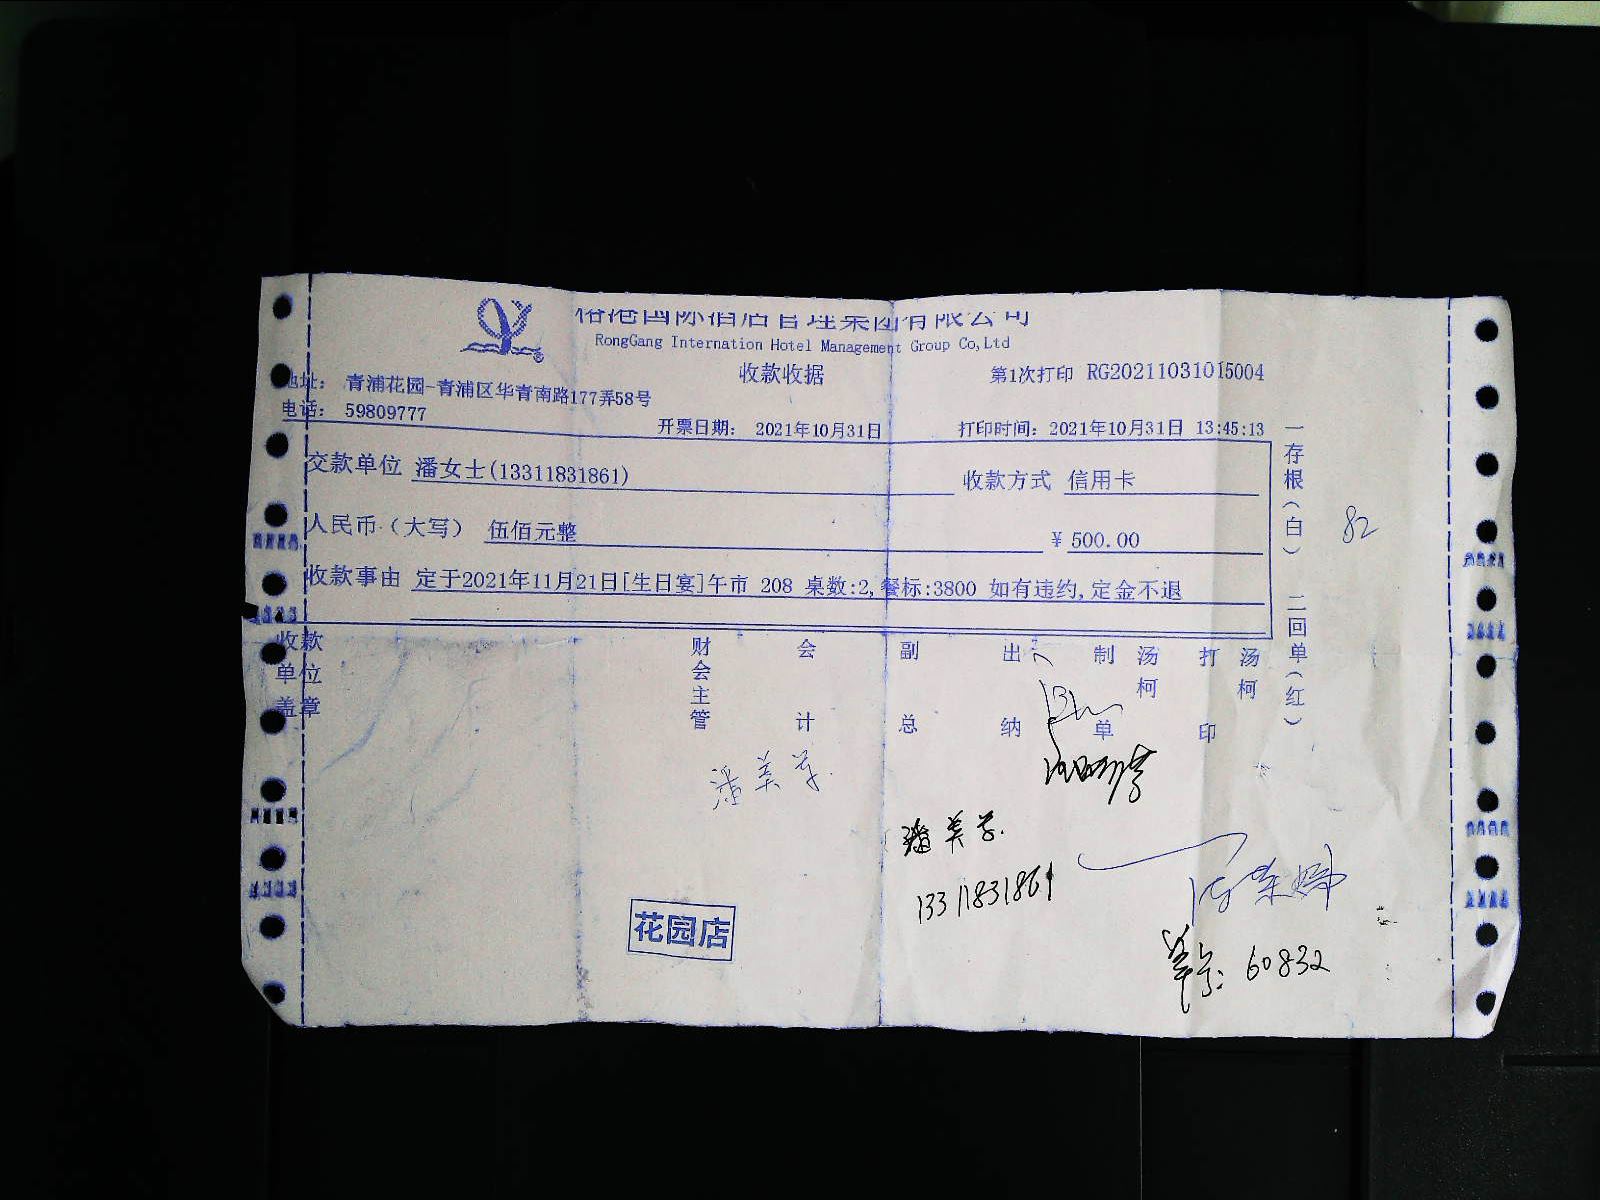 港国际酒店管理集团有限公司
RongGang Internation Hotel Management Group Co,Ltd
收款收据
第1次打印 RG20211031015004
地址: 青浦花园-青浦区华青南路177弄58号
电话: 59809777
开票日期: 2021年10月31日
打印时间: 2021年10月31日 13:45:13
交款单位 潘女士(13311831861)
收款方式 信用卡
人民币(大写) 伍佰元整
¥ 500.00
收款事由 定于2021年11月21日[生日宴]午市 208 桌数:2,餐标:3800 如有违约,定金不退
一存根(白) 二回单(红)
82
收款单位盖章
财会主管
会计
副总
出纳
制单
汤柯
打印
汤柯
潘美芳
潘美芳
13311831861
花园店
单号: 60832